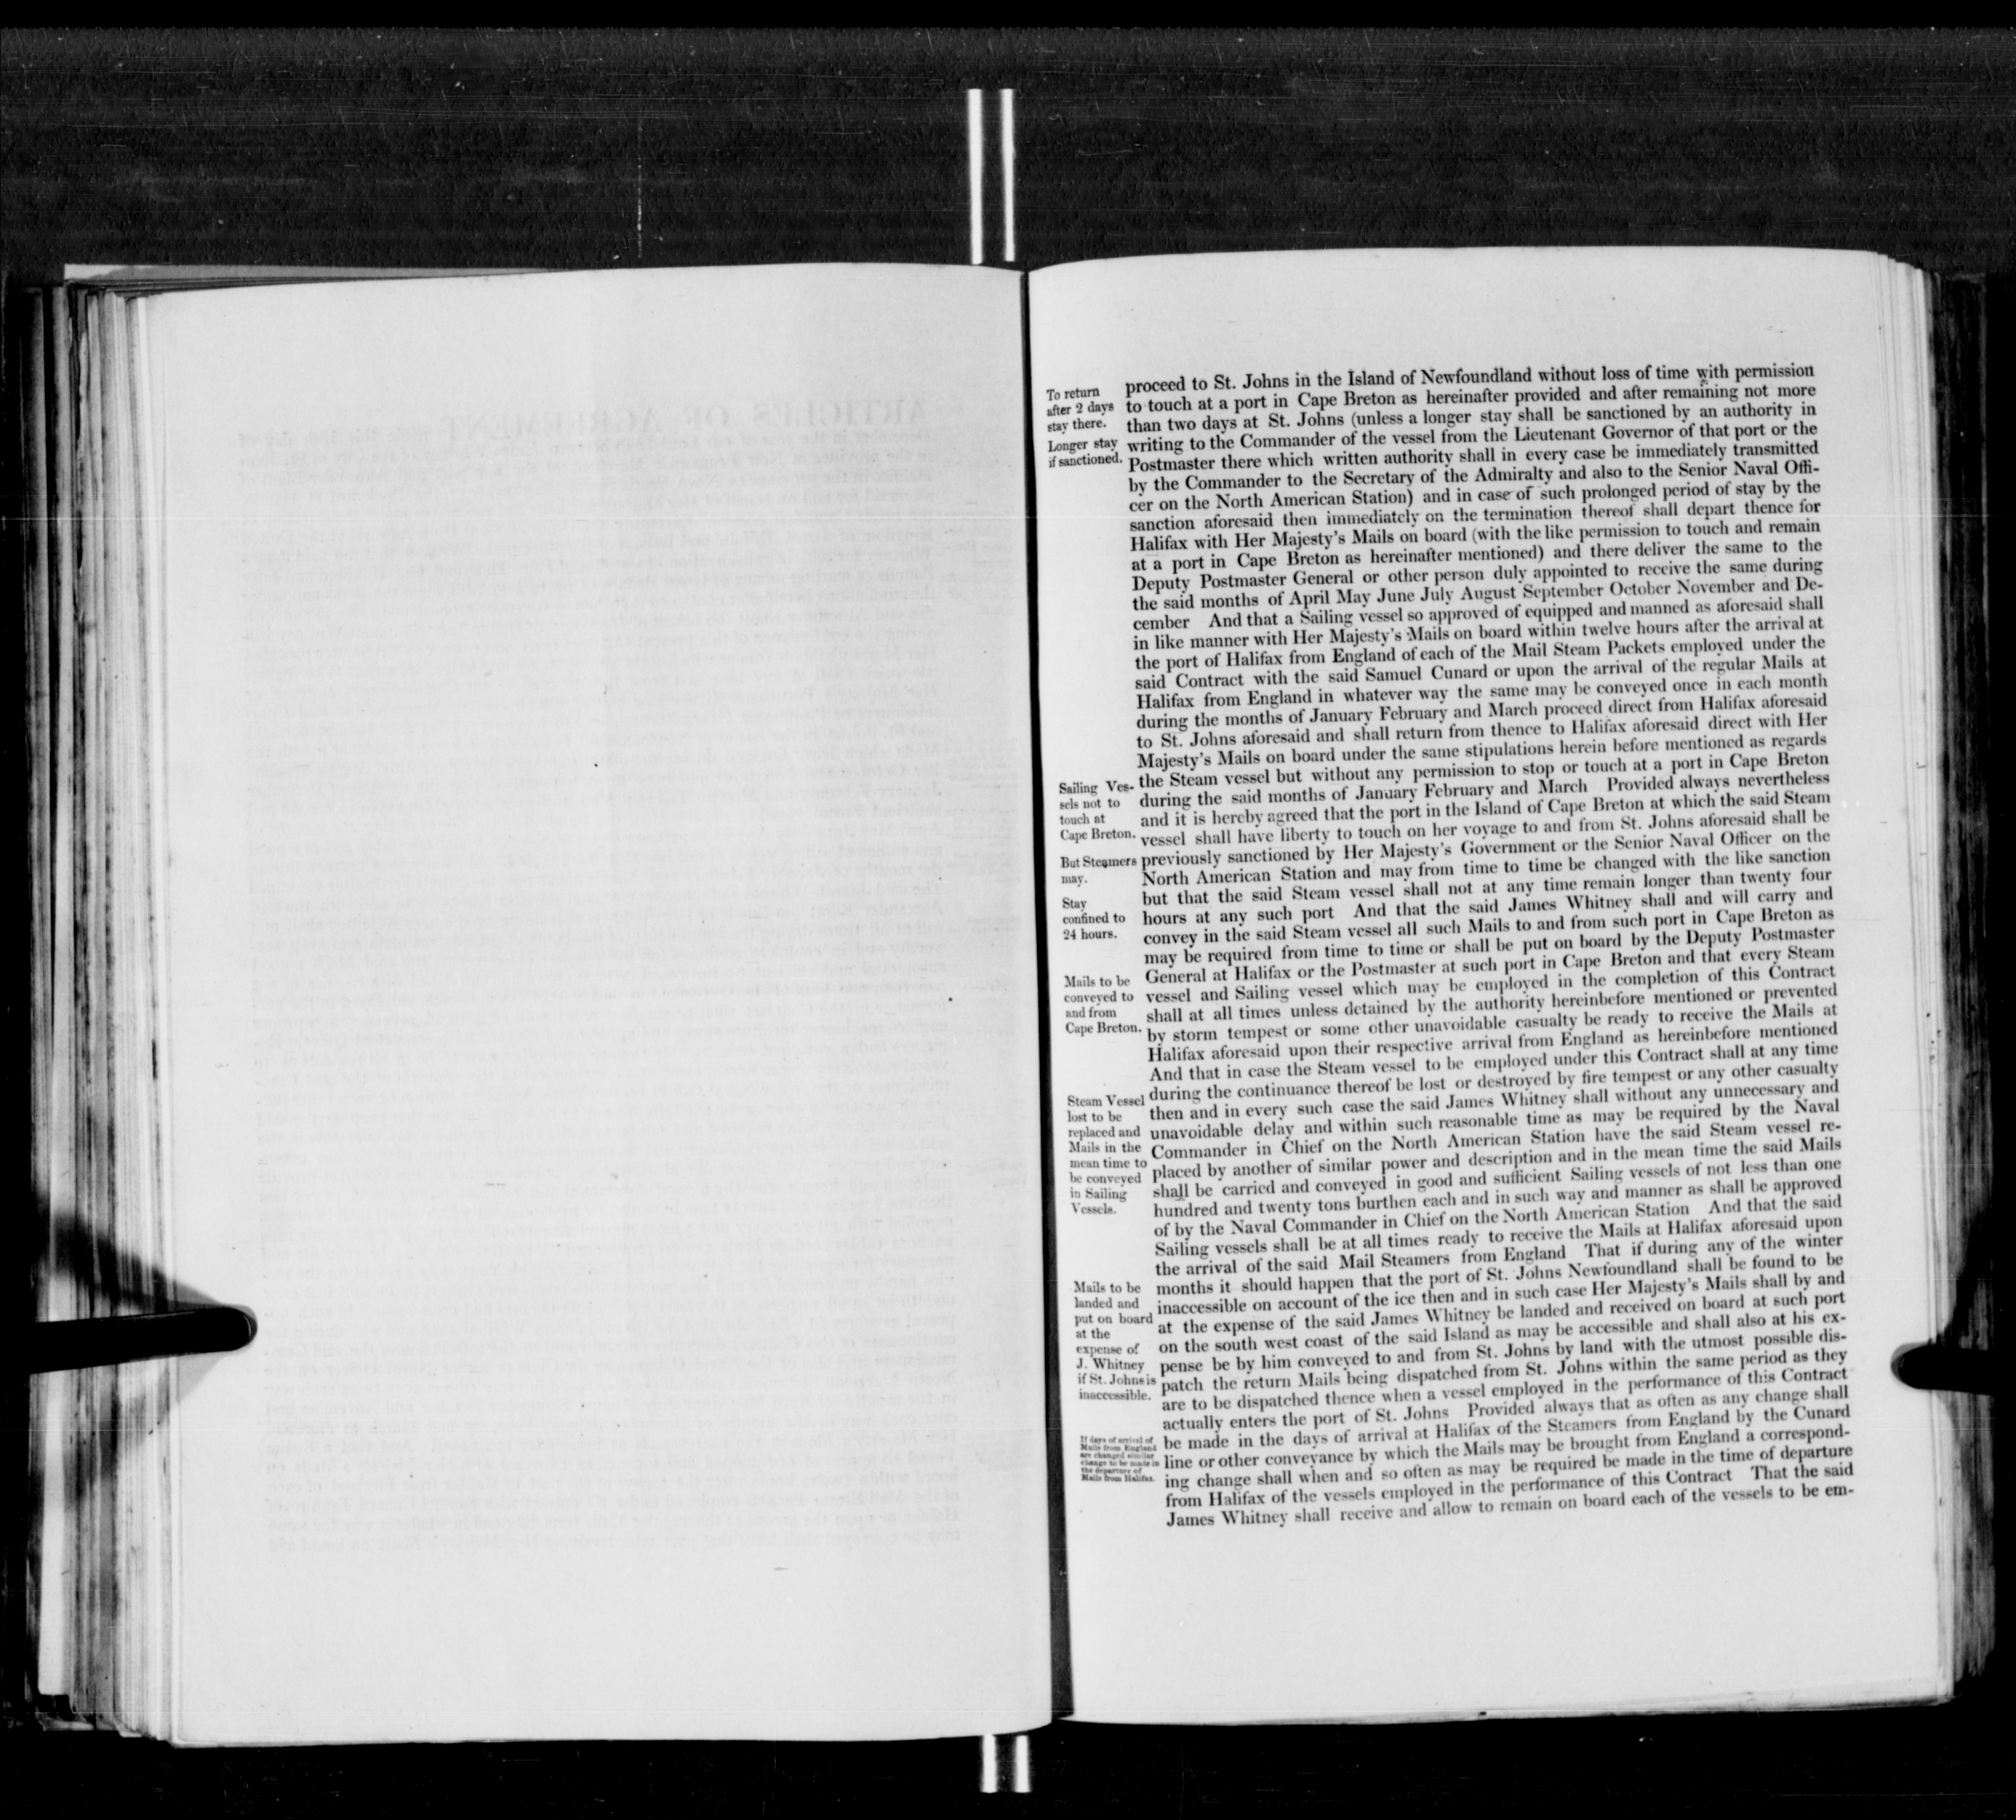 To return
after 2 days
stay there.
Longer stay
if sanctioned.
proceed to St. Johns in the Island of Newfoundland without loss of time with permission
to touch at a port in Cape Breton as hereinafter provided and after remaining not more
than two days at St. Johns (unless a longer stay shall be sanctioned by an authority in
writing to the Commander of the vessel from the Lieutenant Governor of that port or the
Postmaster there which written authority shall in every case be immediately transmitted
by the Commander to the Secretary of the Admiralty and also to the Senior Naval Offi-
cer on the North American Station) and in case of such prolonged period of stay by the
sanction aforesaid then immediately on the termination thereof shall depart thence for
Halifax with Her Majesty's Mails on board (with the like permission to touch and remain
at a port in Cape Breton as hereinafter mentioned) and there deliver the same to the
Deputy Postmaster General or other person duly appointed to receive the same during
the said months of April May June July August September October November and De-
cember And that a Sailing vessel so approved of equipped and manned as aforesaid shall
in like manner with Her Majesty's Mails on board within twelve hours after the arrival at
the port of Halifax from England of each of the Mail Steam Packets employed under the
said Contract with the said Samuel Cunard or upon the arrival of the regular Mails at
Halifax from England in whatever way the same may be conveyed once in each month
during the months of January February and March proceed direct from Halifax aforesaid
to St. Johns aforesaid and shall return from thence to Halifax aforesaid direct with Her
Majesty's Mails on board under the same stipulations herein before mentioned as regards
Sailing Ves-
sels not to
touch at
Cape Breton.
the Steam vessel but without any permission to stop or touch at a port in Cape Breton
during the said months of January February and March Provided always nevertheless
and it is hereby agreed that the port in the Island of Cape Breton at which the said Steam
vessel shall have liberty to touch on her voyage to and from St. Johns aforesaid shall be
But Steamers
may.
previously sanctioned by Her Majesty's Government or the Senior Naval Officer on the
North American Station and may from time to time be changed with the like sanction
Stay
confined to
24 hours.
but that the said Steam vessel shall not at any time remain longer than twenty four
hours at any such port And that the said James Whitney shall and will carry and
convey in the said Steam vessel all such Mails to and from such port in Cape Breton as
may be required from time to time or shall be put on board by the Deputy Postmaster
Mails to be
conveyed to
and from
Cape Breton.
General at Halifax or the Postmaster at such port in Cape Breton and that every Steam
vessel and Sailing vessel which may be employed in the completion of this Contract
shall at all times unless detained by the authority hereinbefore mentioned or prevented
by storm tempest or some other unavoidable casualty be ready to receive the Mails at
Halifax aforesaid upon their respective arrival from England as hereinbefore mentioned
And that in case the Steam vessel to be employed under this Contract shall at any time
Steam Vessel
lost to be
replaced and
Mails in the
mean time to
be conveyed
in Sailing
Vessels.
during the continuance thereof be lost or destroyed by fire tempest or any other casualty
then and in every such case the said James Whitney shall without any unnecessary and
unavoidable delay and within such reasonable time as may be required by the Naval
Commander in Chief on the North American Station have the said Steam vessel re-
placed by another of similar power and description and in the mean time the said Mails
shall be carried and conveyed in good and sufficient Sailing vessels of not less than one
hundred and twenty tons burthen each and in such way and manner as shall be approved
of by the Naval Commander in Chief on the North American Station And that the said
Sailing vessels shall be at all times ready to receive the Mails at Halifax aforesaid upon
the arrival of the said Mail Steamers from England That if during any of the winter
Mails to be
landed and
put on board
at the
expense of
J. Whitney
if St. Johns is
inaccessible.
months it should happen that the port of St. Johns Newfoundland shall be found to be
inaccessible on account of the ice then and in such case Her Majesty's Mails shall by and
at the expense of the said James Whitney be landed and received on board at such port
on the south west coast of the said Island as may be accessible and shall also at his ex-
pense be by him conveyed to and from St. Johns by land with the utmost possible dis-
patch the return Mails being dispatched from St. Johns within the same period as they
are to be dispatched thence when a vessel employed in the performance of this Contract
actually enters the port of St. Johns Provided always that as often as any change shall
If days of arrival of
Mails from England
are changed similar
change to be made in
the departure of
Mails from Halifax.
be made in the days of arrival at Halifax of the Steamers from England by the Cunard
line or other conveyance by which the Mails may be brought from England a correspond-
ing change shall when and so often as may be required be made in the time of departure
from Halifax of the vessels employed in the performance of this Contract That the said
James Whitney shall receive and allow to remain on board each of the vessels to be em-